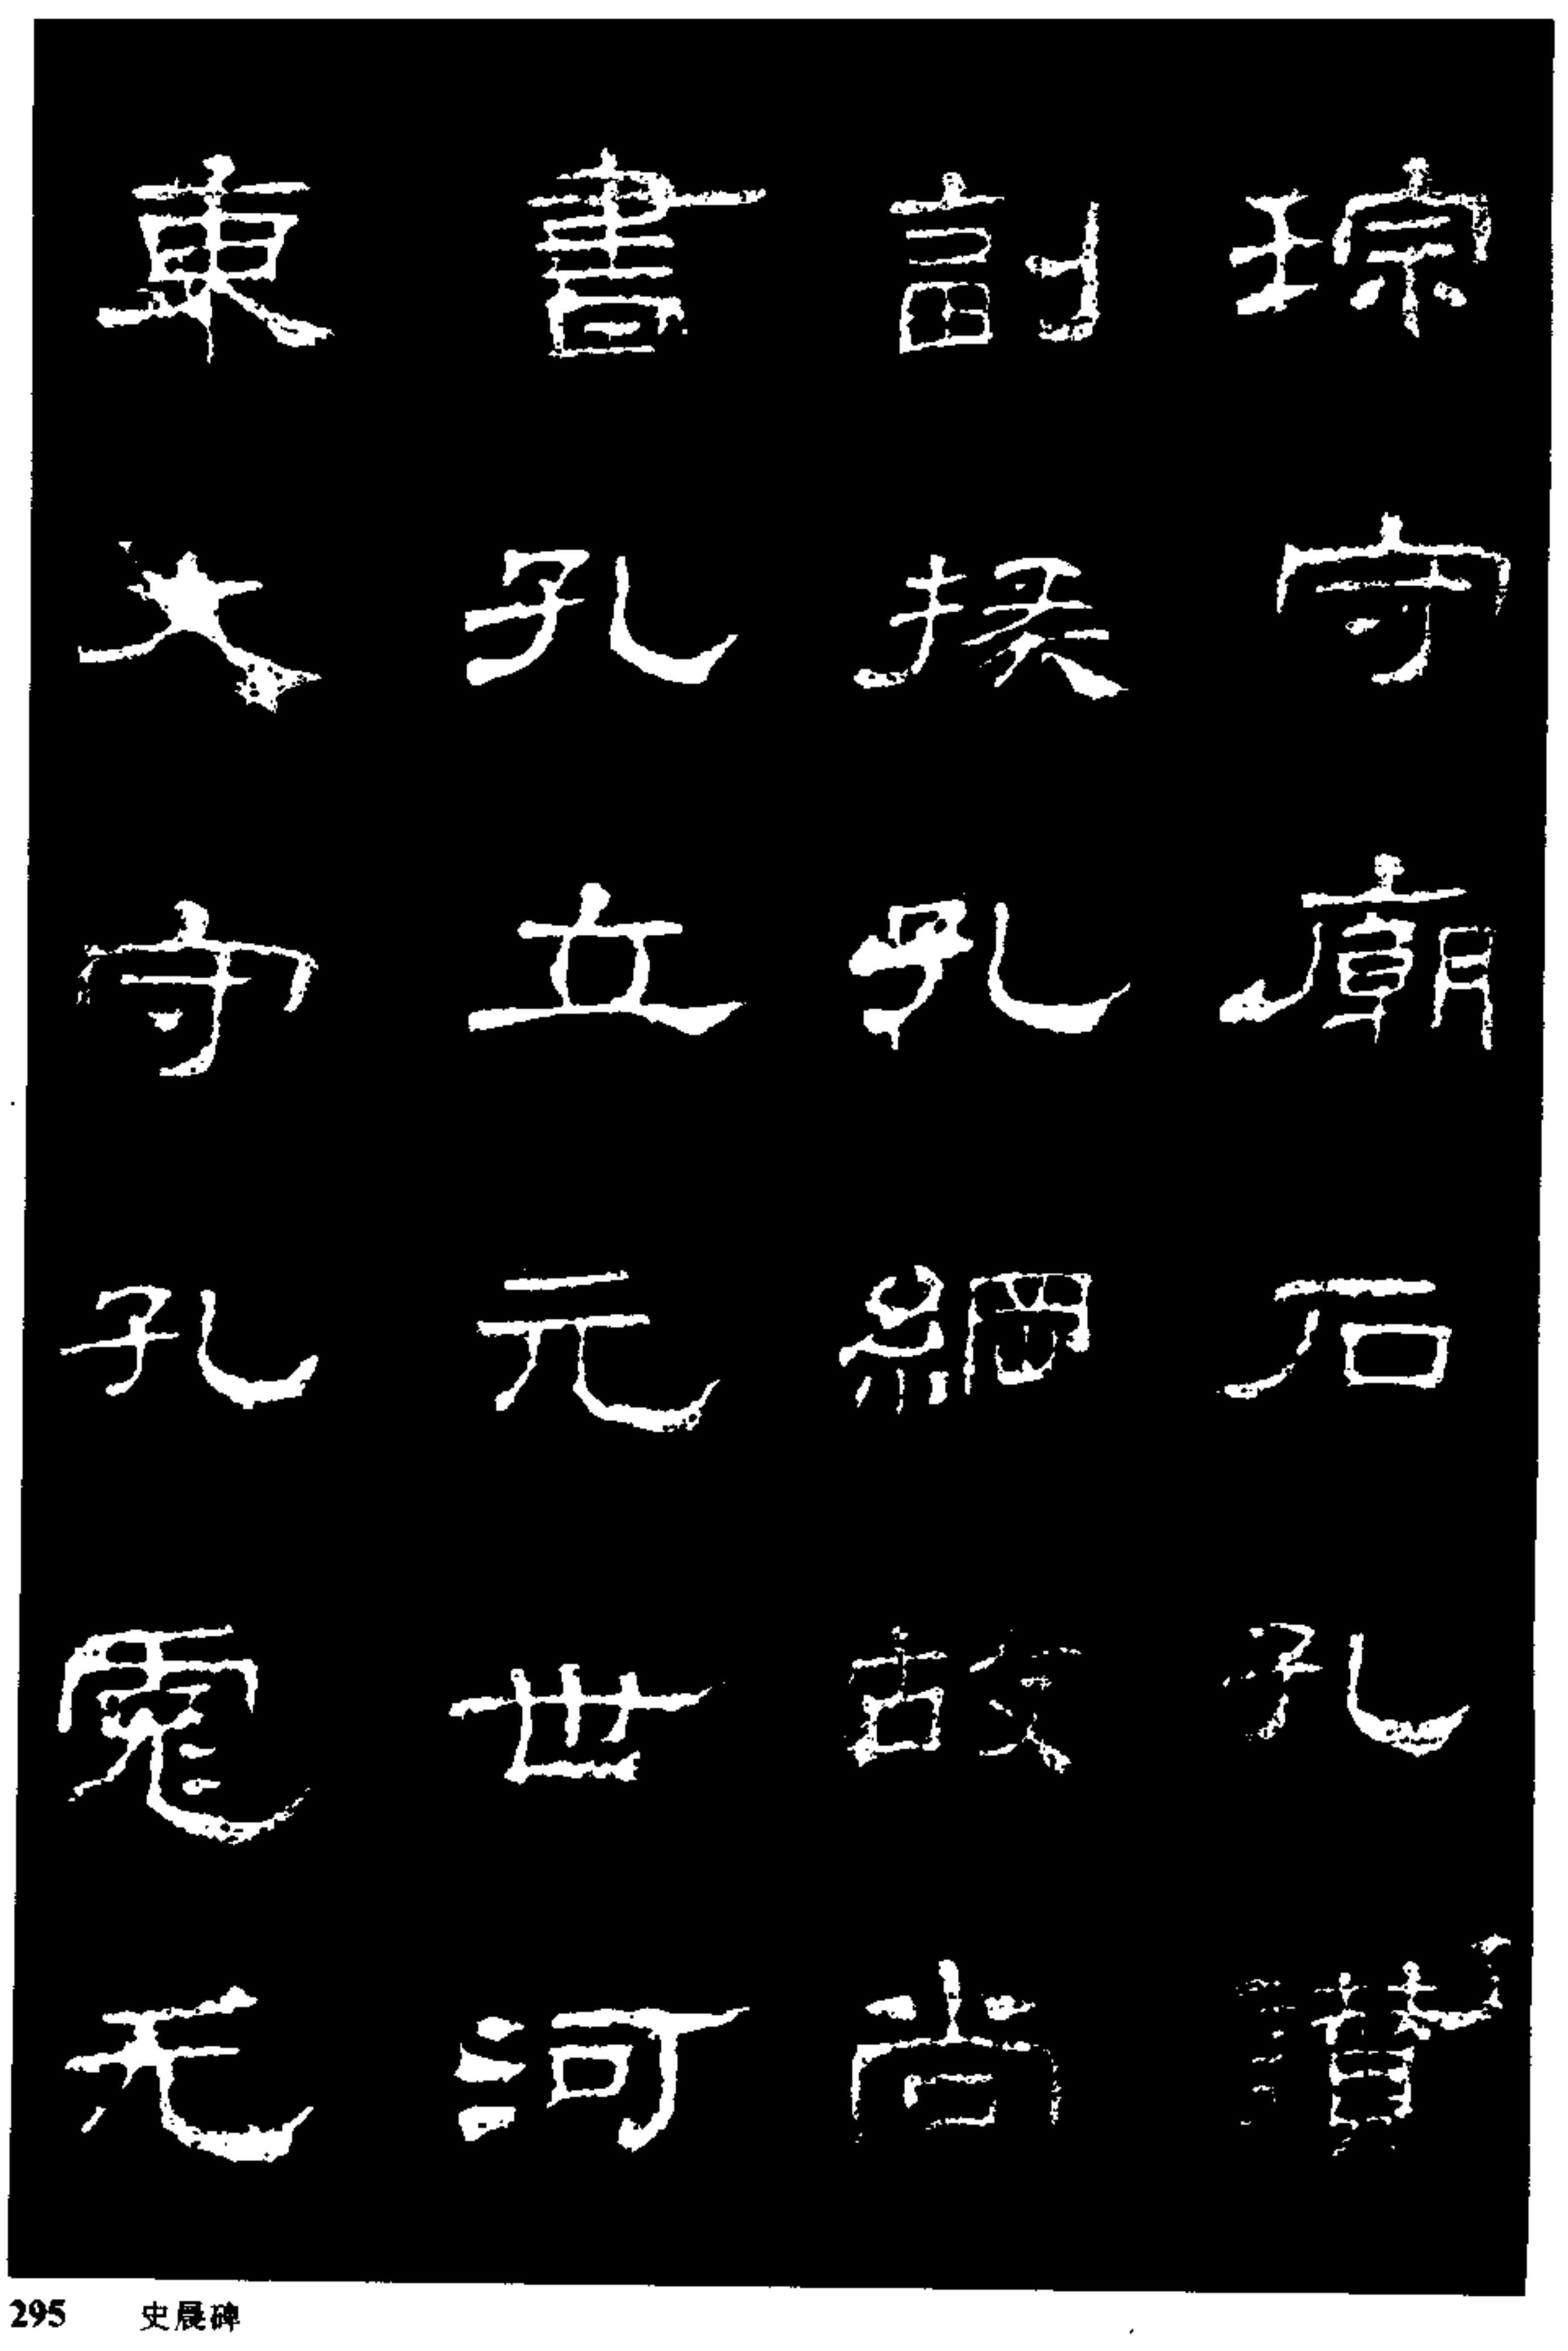 琮守廟石孔讚
副掾孔綱故尚
書孔立元世河
東大守孔彪元
295 史晨碑